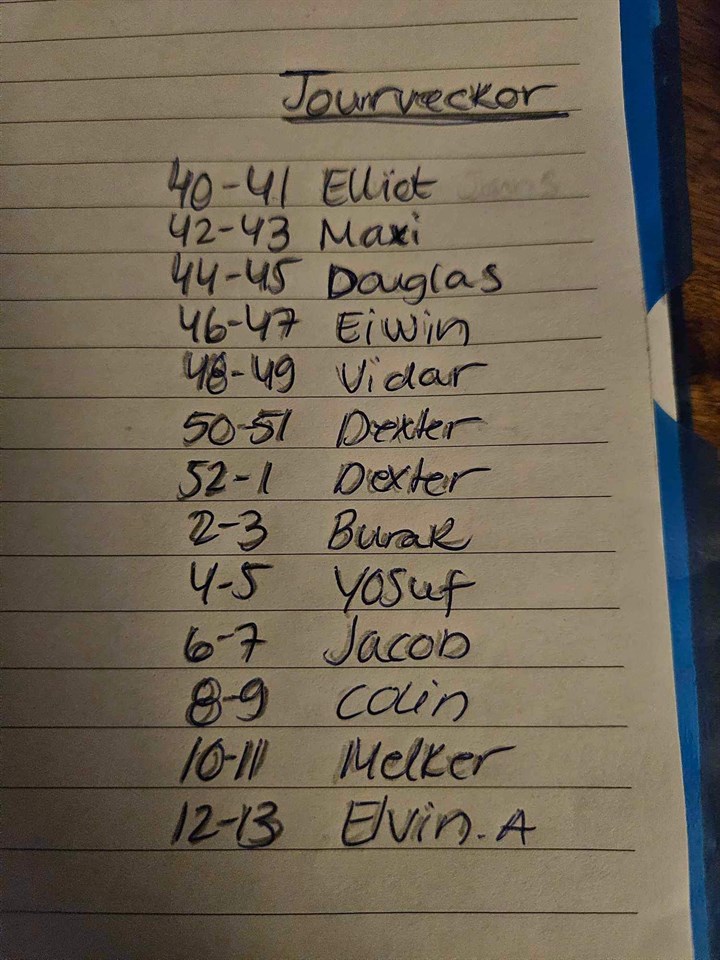 Jourveckor
40-41 Elliot
42-43 Maxi
44-45 Douglas
46-47 Eiwin
48-49 Vidar
50-51 Dexter
52-1 Dexter
2-3 Burak
4-5 Yosuf
6-7 Jacob
8-9 Colin
10-11 Melker
12-13 Elvin.A